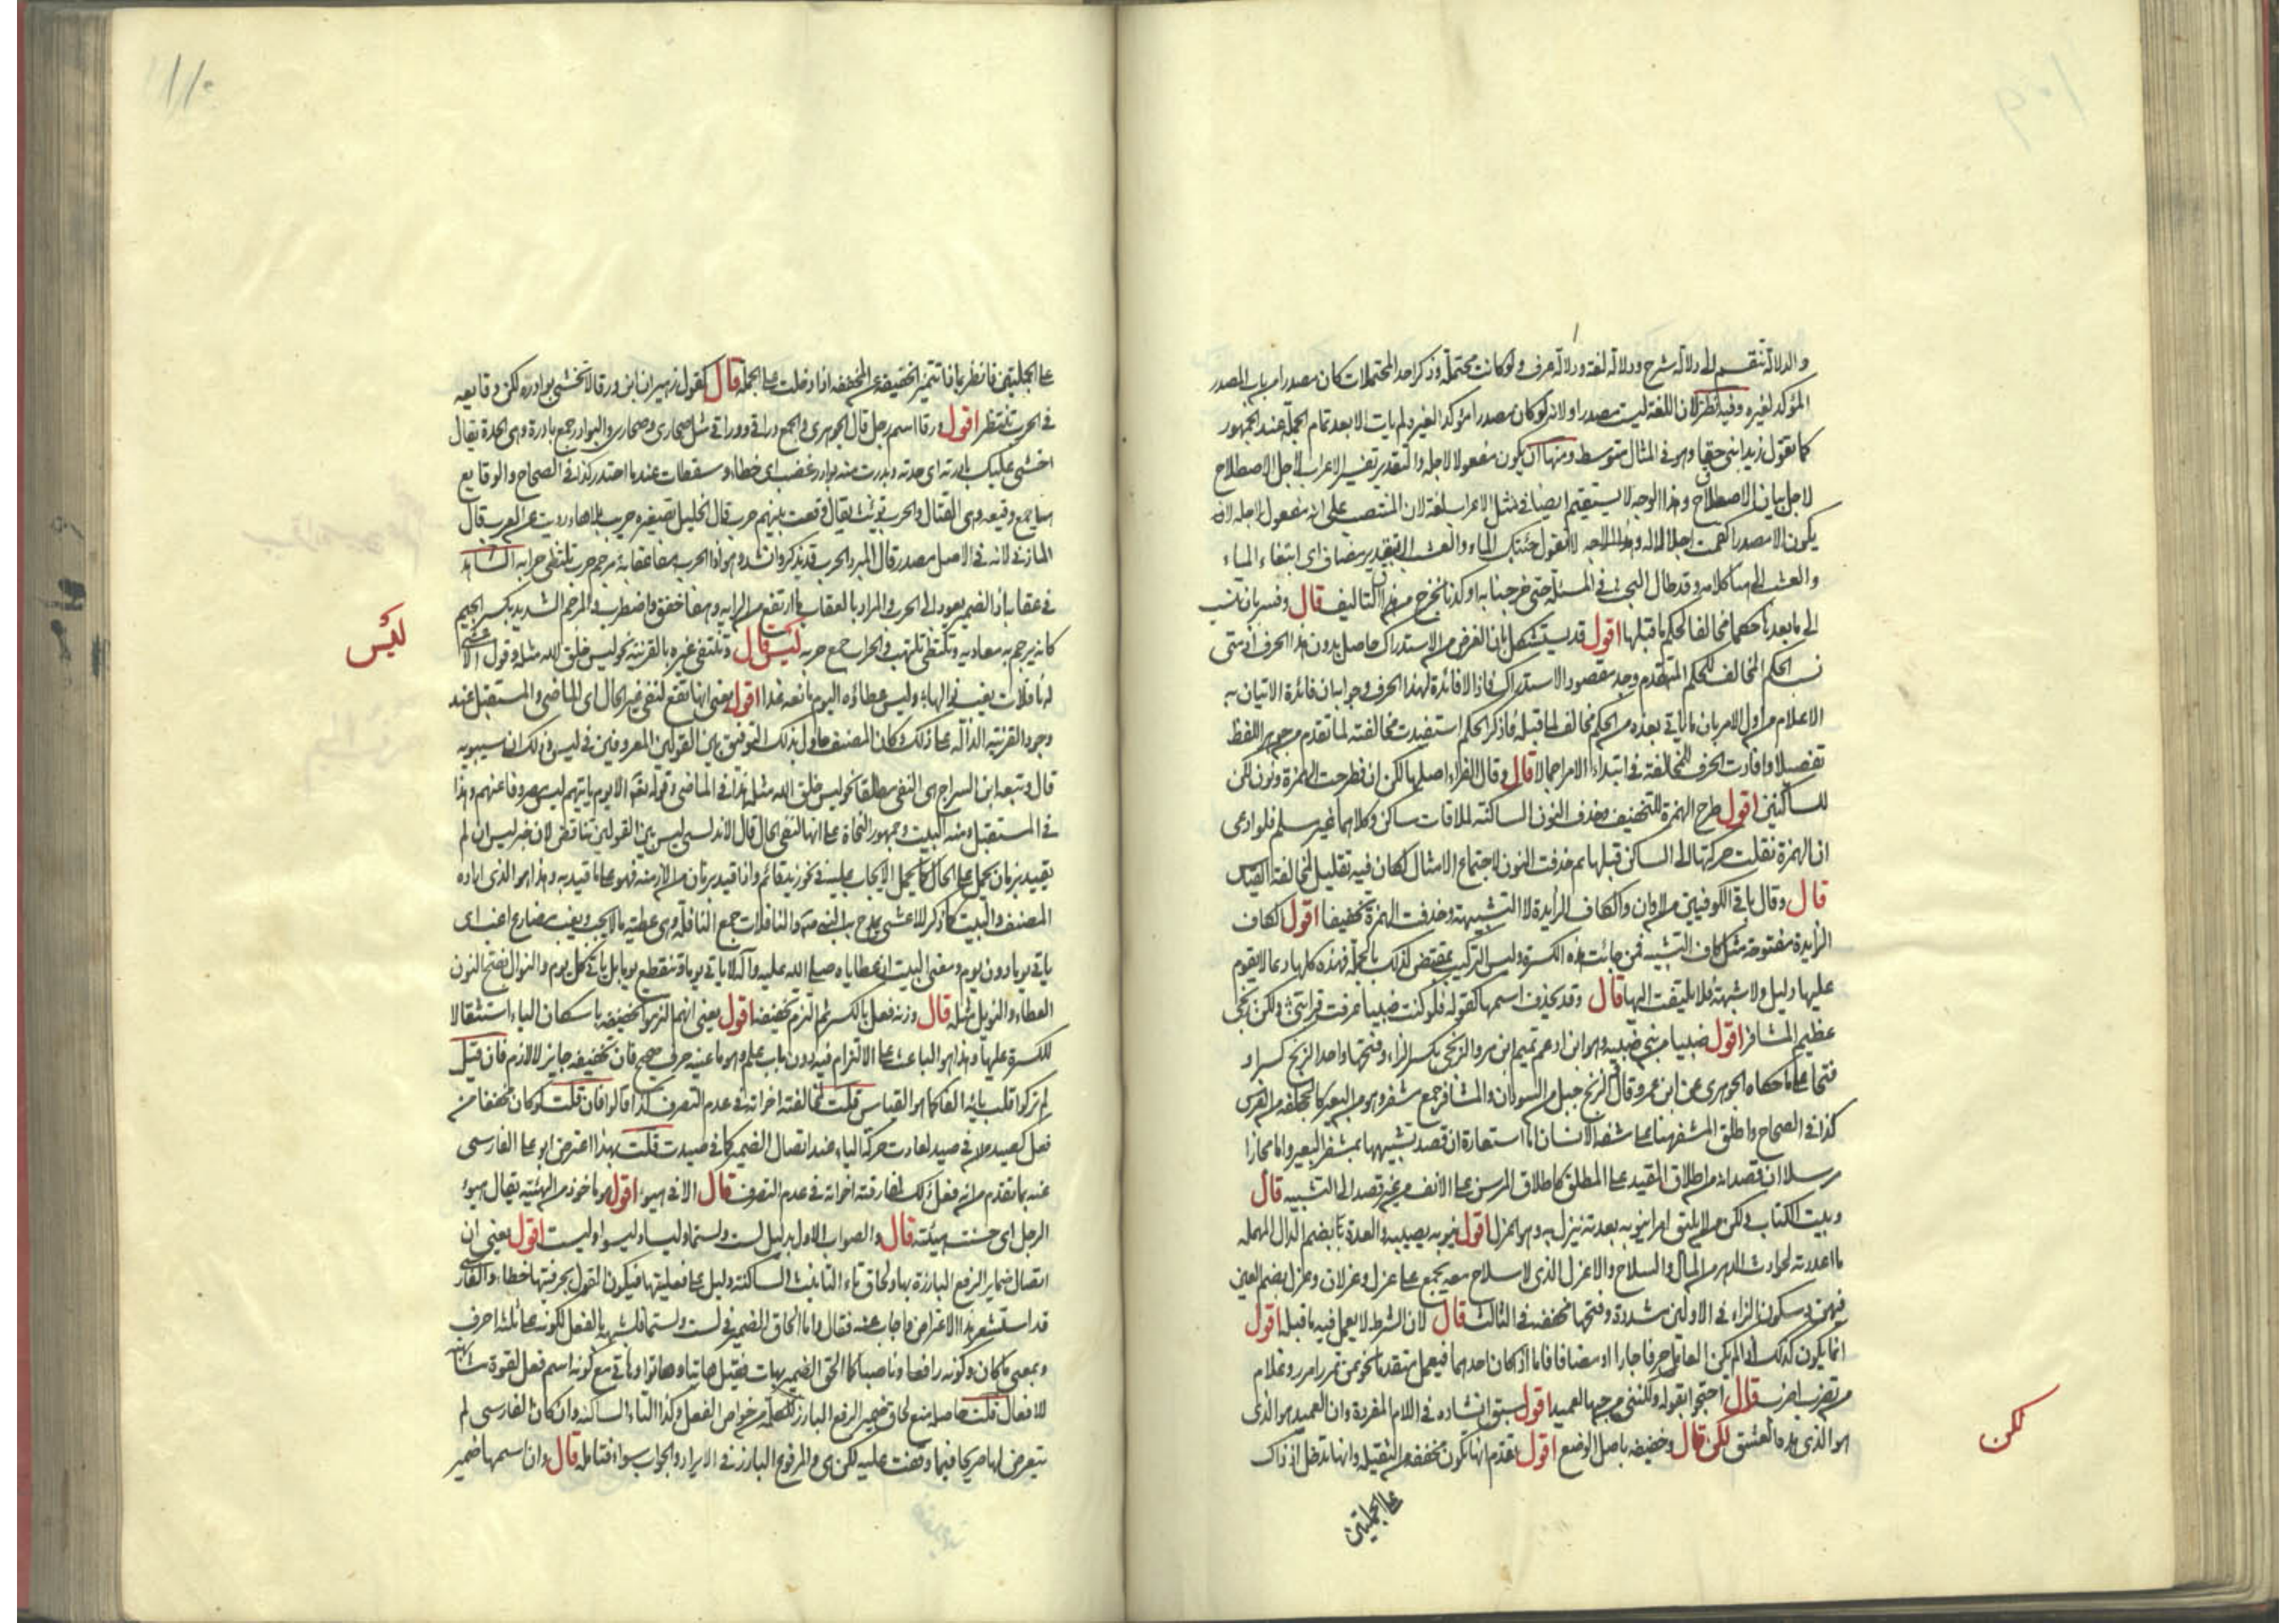 والدلالة تنقسم الى دلالة شرح ودلالة لغة ودلالة عرف ولو كانت محتملة وذكر احد المحتملات كان مصدرا من باب المصدر
المؤكد لغيره وفيه نظر لان اللغة ليست مصدرا ولانه لو كان مصدرا مؤكدا لغيره لم يات الا بعد تمام الجملة عند الجمهور
كما تقول زيد ابني حقا وهو في المثال متوسط ومنها ان يكون مفعولا لاجله والتقدير تفسير الاعراب لاجل الاصطلاح
لاجل بيان الاصطلاح وهذا الوجه لا يستقيم ايضا في مثل الاعراب لغة لان المنتصب على انه مفعول لاجله لا
يكون الا مصدرا كقمت اجلالا له لا تقول جئتك الماء والعشب التقدير مضاف اى ابتغاء الماء
والعشب الى هنا كلامه وقد طال البحث في المسئلة حتى خرجنا به او كدنا نخرج من هذا التاليف قال وفسر بان تنسب
الى ما بعدها حكما مخالفا لحكم ما قبلها اقول قد يستشكل بان الغرض من الاستدراك حاصل بدون هذا الحرف اذ متى
نسب الحكم المخالف للحكم المتقدم وجد مقصود الاستدراك فاذا لا فائدة لهذا الحرف وجوابه ان فائدة الاتيان به
الاعلام من اول الامر بان ما ياتي بعده من الحكم مخالف لما قبله فاذا ذكر الحكم استفيدت مخالفته لما تقدم من جوهر اللفظ
تفصيلا وافادت الحرف للمخالفة في ابتداء الامر اجمالا قال وقال الفراء اصلها لكن ان فطرحت الهمزة ونون لكن
للساكنين اقول طرح الهمزة للتخفيف وحذف النون الساكنة لملاقات ساكن وكلاهما غير مسلم فلو ادعى
ان الهمزة نقلت حركتها الى الساكن قبلها ثم حذفت النون لاجتماع الامثال لكان فيه تقليل لمخالفة القياس
قال وقال باقي الكوفيين من لا وان والكاف الزايدة لا التشبيهية وحذفت الهمزة تخفيفا اقول الكاف
الزايدة مفتوحة مثل كاف التشبيه فمن جائت هذه الكسرة وليس التركيب بمقتض لذلك بالجملة فهذه كلها دعاوى لا يقوم
عليها دليل ولا شبهة فلا يلتفت اليها قال وقد يحذف اسمها كقوله فلو كنت ضبيا عرفت قرابتي ولكن زنجي
عظيم المشافر اقول ضبيا من بني ضبه وهو ابن اد عم تميم ابن مر والزنجي بكسر الزاء وفتحها واحد الزنج كسرا و
فتحا على ما حكاه الجوهري عن ابن عمرو قال الزنج جيل من السودان والمشافر جمع مشفر وهو من البعير كالجحفلة من الفرس
كذا في الصحاح واطلق المشفر هنا على شفة الانسان اما استعارة ان قصد تشبيهها بمشفر البعير واما مجازا
مرسلا ان قصد انه من اطلاق المقيد على المطلق كاطلاق المرسن على الانف من غير قصد الى التشبيه قال
وبيت الكتاب ولكن من لا يلق امرا ينوبه بعدته ينزل به وهو اعزل اقول ينوبه يصيبه والعدة بضم الدال المهملة
ما اعددته لحوادث الدهر من المال والسلاح والاعزل الذى لا سلاح معه يجمع على عزل وعزلان وعزل بضم العين
فيهن وسكون الزاء في الاولين مشددة وفتحها مخففة في الثالث قال لان الشرط لا يعمل فيه ما قبله اقول
انما يكون كذلك اذا لم يكن العامل حرفا جارا او مضافا فاما اذا كان احدهما فيعمل متقدما نحو بمن تمرر امرر وغلام
من تضرب اضرب قال احتجوا بقوله ولكنني من حبها لعميد اقول سبق انشاده في اللام المفردة وان العميد هو الذى
هو الذى هده العشق لكن قال وخفيفة باصل الوضع اقول تقدم انها تكون مخففة من الثقيلة وانها تدخل اذ ذاك
على الجملتين
لكن
١١٠
على الجملتين فانظر بماذا تتميز الخفيفة عن المخففة اذا دخلت على الجملة قال كقول زهير ان ابن ورقا لا تخشى بوادره لكن وقايعه
في الحرب تنتظر اقول ورقا اسم رجل قال الجوهري والجمع وراقي ووراقى مثل صحارى وصحارى والبوادر جمع بادرة وهي الحدة يقال
اخشى عليك بادرته اى حدته وبدرت منه بوادر غضب اى خطاء وسقطات عند ما احتد كذا في الصحاح والوقايع
جمع وقيعة وهي القتال والحرب تؤنث يقال وقعت بينهم حرب قال الخليل تصغيره حريب بلا هاء رويت عن العرب قال
المازني لانه في الاصل مصدر قال المبرد الحرب قد يذكر وانشد وهو اذا الحرب هفا عقابه مرجم حرب تلتظى حرابه الشاهد
في عقابه اذ الضمير يعود الى الحرب والمراد بالعقاب ما ارتفع من الراية وهفا خفق واضطرب والمرجم الشديد بكسر الجيم
كانه يرجم به معاديه وتلتظى تلتهب والحراب جمع حربه ليس قال وتنتفي غيره بالقرينة نحو ليس خلق الله مثله وقول الاعشى
له نافلات يغب نوالها وليس عطاؤه اليوم مانعه غدا اقول يعني انها تقع لنفي غير الحال اى الماضي والمستقبل عند
وجود القرينة الدالة على ذلك وكان المصنف حاول بذلك التوفيق بين القولين المعروفين في ليس وذلك ان سيبويه
قال وتبعه ابن السراج هي للنفي مطلقا نحو ليس خلق الله مثله هذا في الماضي وقوله تعالى الا يوم ياتيهم ليس مصروفا عنهم وهذا
في المستقبل ومنه البيت وجمهور النحاة على انها لنفي الحال قال الاندلسي ليس بين القولين تناقض لان خبر ليس ان لم
يقيد بزمان يحمل على الحال كما يحمل الايجاب عليه في نحو زيد قائم واذا قيد بزمان من الازمنة فهو على ما قيد به وهذا هو الذى اراده
المصنف والبيت كما ذكر للاعشى يمدح به النبي والنافلات جمع النافلة وهي عطية ما لا يجب ويغب مضارع اغب اى
ياتي يوما دون يوم ومعنى البيت ان عطاياه صلى الله عليه وآله لا ياتي يوما وتنقطع يوما بل ياتي كل يوم والنوال بفتح النون
العطاء والنويل مثله قال وزنه فعل بالكسر ثم التزم تخفيفه اقول يعني انهم التزموا تخفيفه باسكان الياء استثقالا
للكسرة عليها وهذا هو الباعث على الالتزام فيه دون باب علم وهو ما عينه حرف صحيح فان تخفيفه جايز لا لازم فان قيل
لم تركوا قلب يائه الفا كما هو القياس قلت لمخالفته اخواته في عدم التصرف كذا قالوا فان قلت لو كان مخففا من
فعل كصيد من في صيد لعادت حركة الياء عند اتصال الضمير كما في صيدت قلت بهذا اعترض ابو على الفارسى
عنه بما تقدم من انه فعل ذلك لمفارقته اخواته في عدم التصرف قال الا في هيوء اقول هو ماخوذ من الهيئة يقال هيوء
الرجل اى حسنت هيئته قال والصواب الاول بدليل لست ولستما وليسا وليسوا وليست اقول يعني ان
اتصال ضماير الرفع البارزة بها ولحاق تاء التانيث الساكنة دليل على فعليتها فيكون القول بحرفيتها خطاء والفارسى
قد استشعر هذا الاعتراض واجاب عنه فقال واما الحاق الضمير في لست ولستما فلشبهه بالفعل لكونه على ثلثة احرف
وبمعنى ما كان وكونه رافعا وناصبا كما الحق الضمير بهات فقيل هاتيا وهاتوا وهاتي مع كونه اسم فعل لقوة مشابهته
للافعال قلت حاصله منع لحاق ضمير الرفع البارز من خواص الفعل وكذا التاء الساكنة وان كان الفارسى لم
يتعرض لها صريحا فيما وقفت عليه لكن هي والمرفوع البارز في الايراد والجواب سواء فتامله قال وان اسمها ضمير
ليس